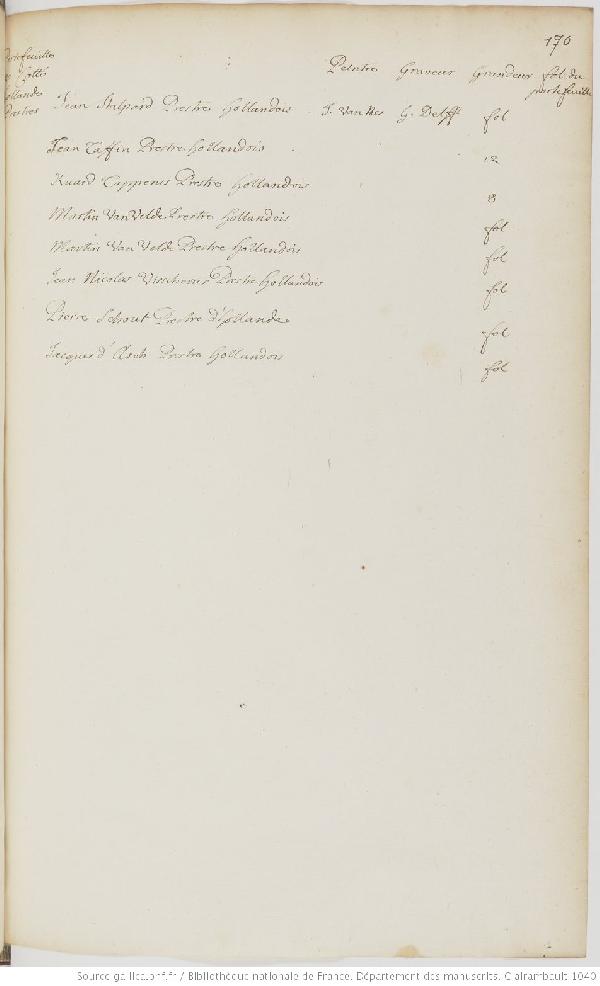 170
Portefeuille
Hollande
Prestres
Peintre Graveur Grandeur fol. du
portefeuille
Jean Stalpard Prestre hollandois J. Van Nes G. Delfft fol
Jean Taffin Prestre hollandois 12
Ruard Tapperus Prestre hollandois 8
Martin Van Velde Prestre hollandois fol
Martin Van Velde Prestre hollandois fol
Jean Nicolas Visscherus Prestre hollandois fol
Pierre Schout Prestre d'hollande fol
Jacques d'Asch Prestre hollandois fol
Source gallica.bnf.fr / Bibliothèque nationale de France. Département des manuscrits. Clairambault 1040